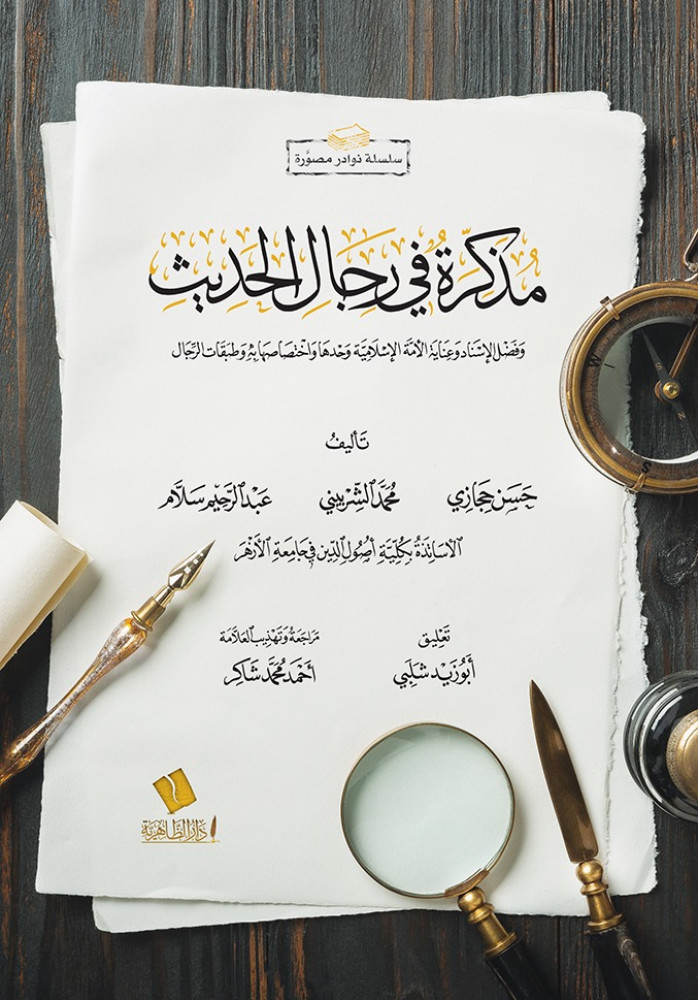 سلسلة نوادر مصوَّرة
مُذَكِّرَةٌ فِي رِجَالِ الحَدِيثِ
وَفَضْلُ الإِسْنَادِ وَعِنَايَةُ الأُمَّةِ الإِسْلَامِيَّةِ وَحْدَهَا وَاخْتِصَاصُهَا بِهِ وَطَبَقَاتُ الرِّجَالِ
تَأْلِيفُ
حَسَن حِجَازِي مُحَمَّد الشِّرْبِينِي عَبْد الرَّحِيم سَلَّام
الأَسَاتِذَةُ بِكُلِّيَّةِ أُصُولِ الدِّينِ فِي جَامِعَةِ الأَزْهَرِ
تَعْلِيق مُرَاجَعَةُ وَتَهْذِيبُ العَلَّامَةِ
أَبُو زَيْد شَلَبِي أَحْمَد مُحَمَّد شَاكِر
دَارُ الظَّاهِرِيَّة
W
S